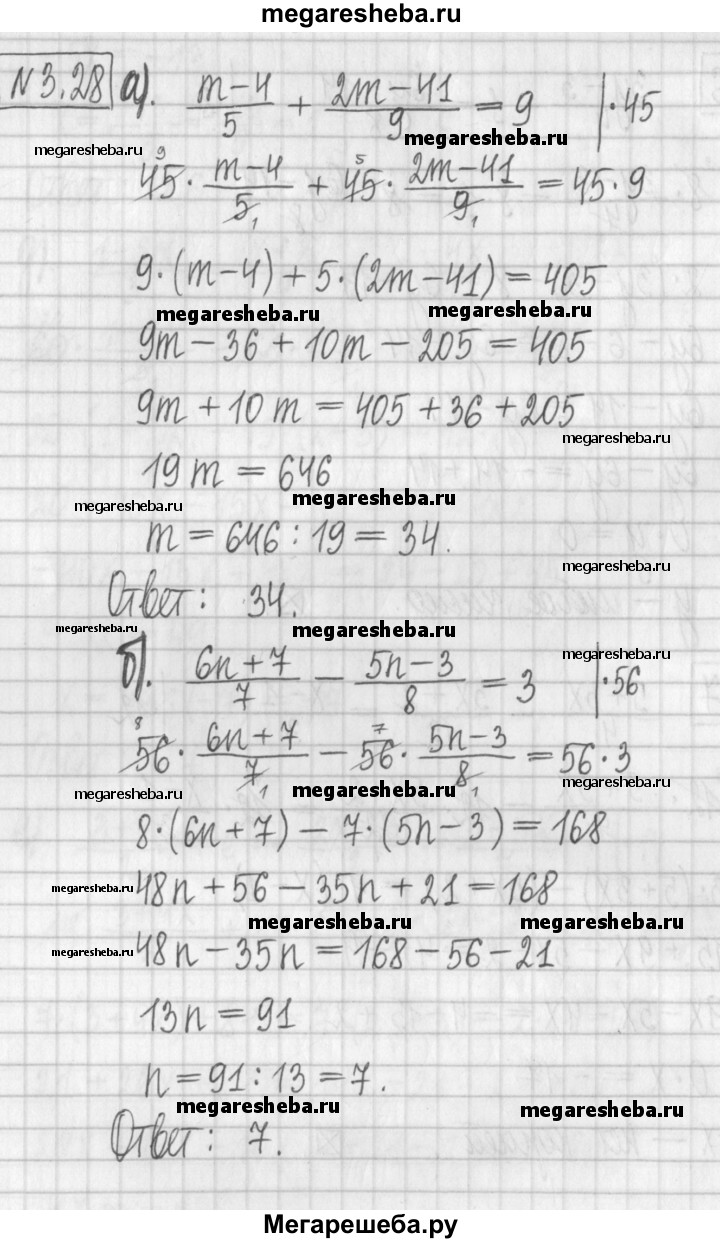 megaresheba.ru
N 3.28 а). (m-4)/5 + (2m-41)/9 = 9 |·45
megaresheba.ru
megaresheba.ru
45⁹ · (m-4)/5₁ + 45⁵ · (2m-41)/9₁ = 45·9
9·(m-4)+5·(2m-41)=405
megaresheba.ru megaresheba.ru
9m-36+10m-205=405
9m+10m=405+36+205
megaresheba.ru
19m=646
megaresheba.ru megaresheba.ru
m=646:19=34.
megaresheba.ru
Ответ: 34.
megaresheba.ru megaresheba.ru
б). (6n+7)/7 - (5n-3)/8 = 3 |·56
megaresheba.ru
56⁸ · (6n+7)/7₁ - 56⁷ · (5n-3)/8₁ = 56·3
megaresheba.ru megaresheba.ru megaresheba.ru
8·(6n+7)-7·(5n-3)=168
megaresheba.ru 48n+56-35n+21=168
megaresheba.ru megaresheba.ru
megaresheba.ru 48n-35n=168-56-21
13n=91
n=91:13=7.
megaresheba.ru megaresheba.ru
Ответ: 7.
Мегарешеба.ру